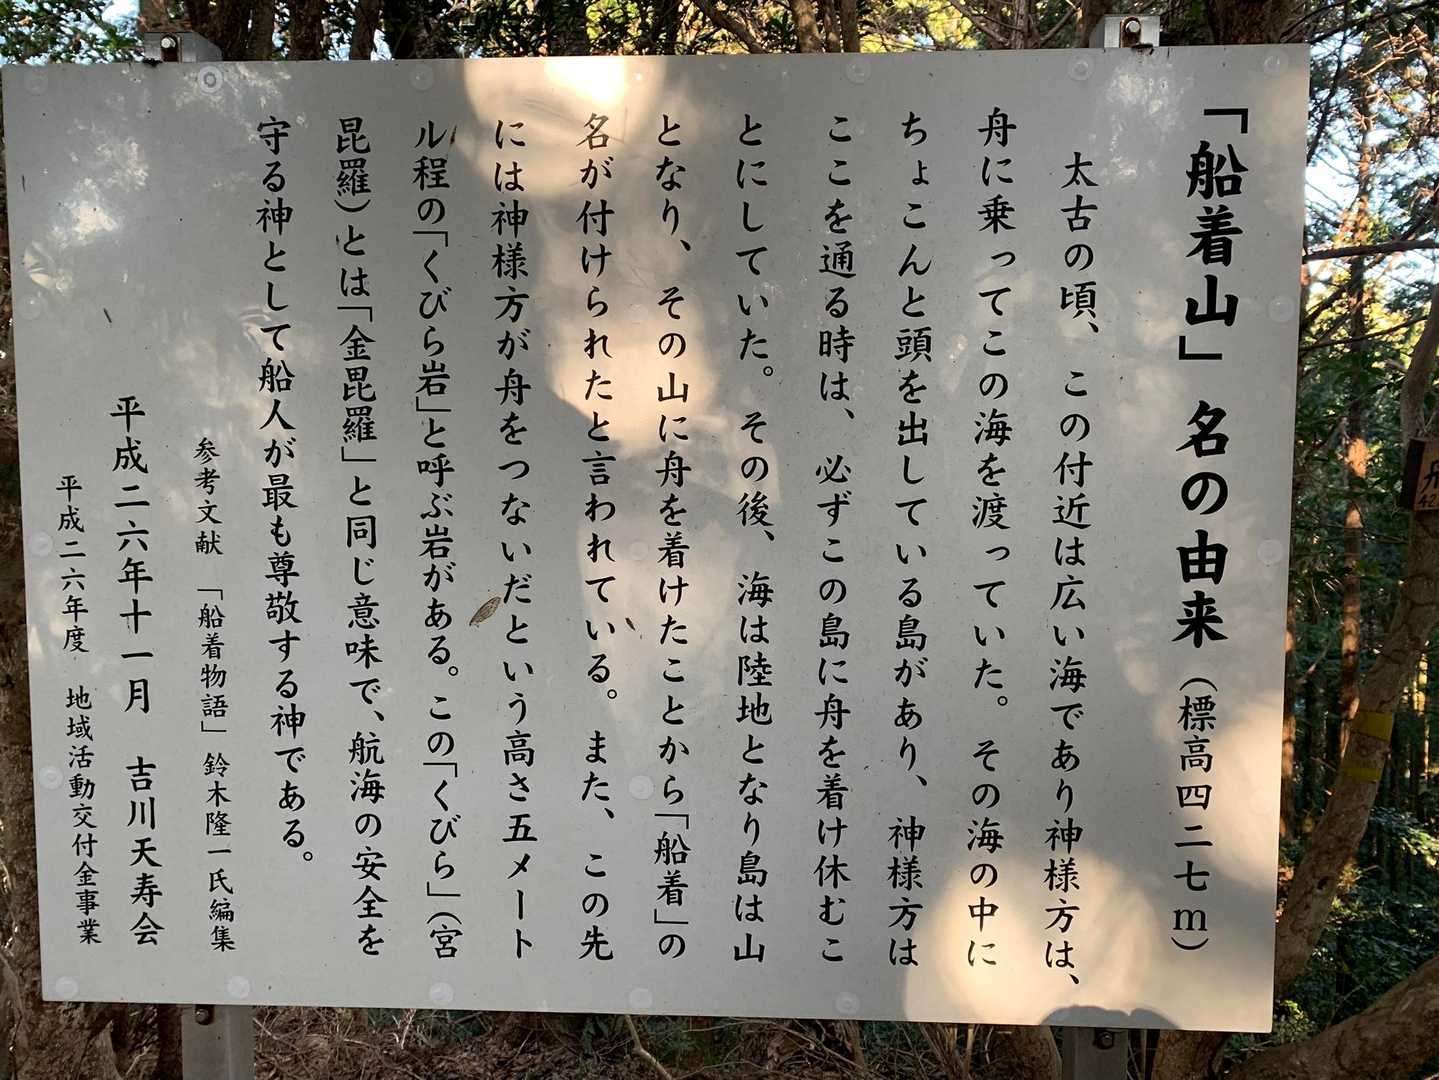 「船着山」名の由来（標高四二七ｍ）
太古の頃、この付近は広い海であり神様方は、
舟に乗ってこの海を渡っていた。その海の中に
ちょこんと頭を出している島があり、神様方は
ここを通る時は、必ずこの島に舟を着け休むこ
とにしていた。その後、海は陸地となり島は山
となり、その山に舟を着けたことから「船着」の
名が付けられたと言われている。また、この先
には神様方が舟をつないだという高さ五メート
ル程の「くびら岩」と呼ぶ岩がある。この「くびら」（宮
昆羅）とは「金毘羅」と同じ意味で、航海の安全を
守る神として船人が最も尊敬する神である。
参考文献 「船着物語」鈴木隆一氏編集
平成二六年十一月 吉川天寿会
平成二六年度 地域活動交付金事業